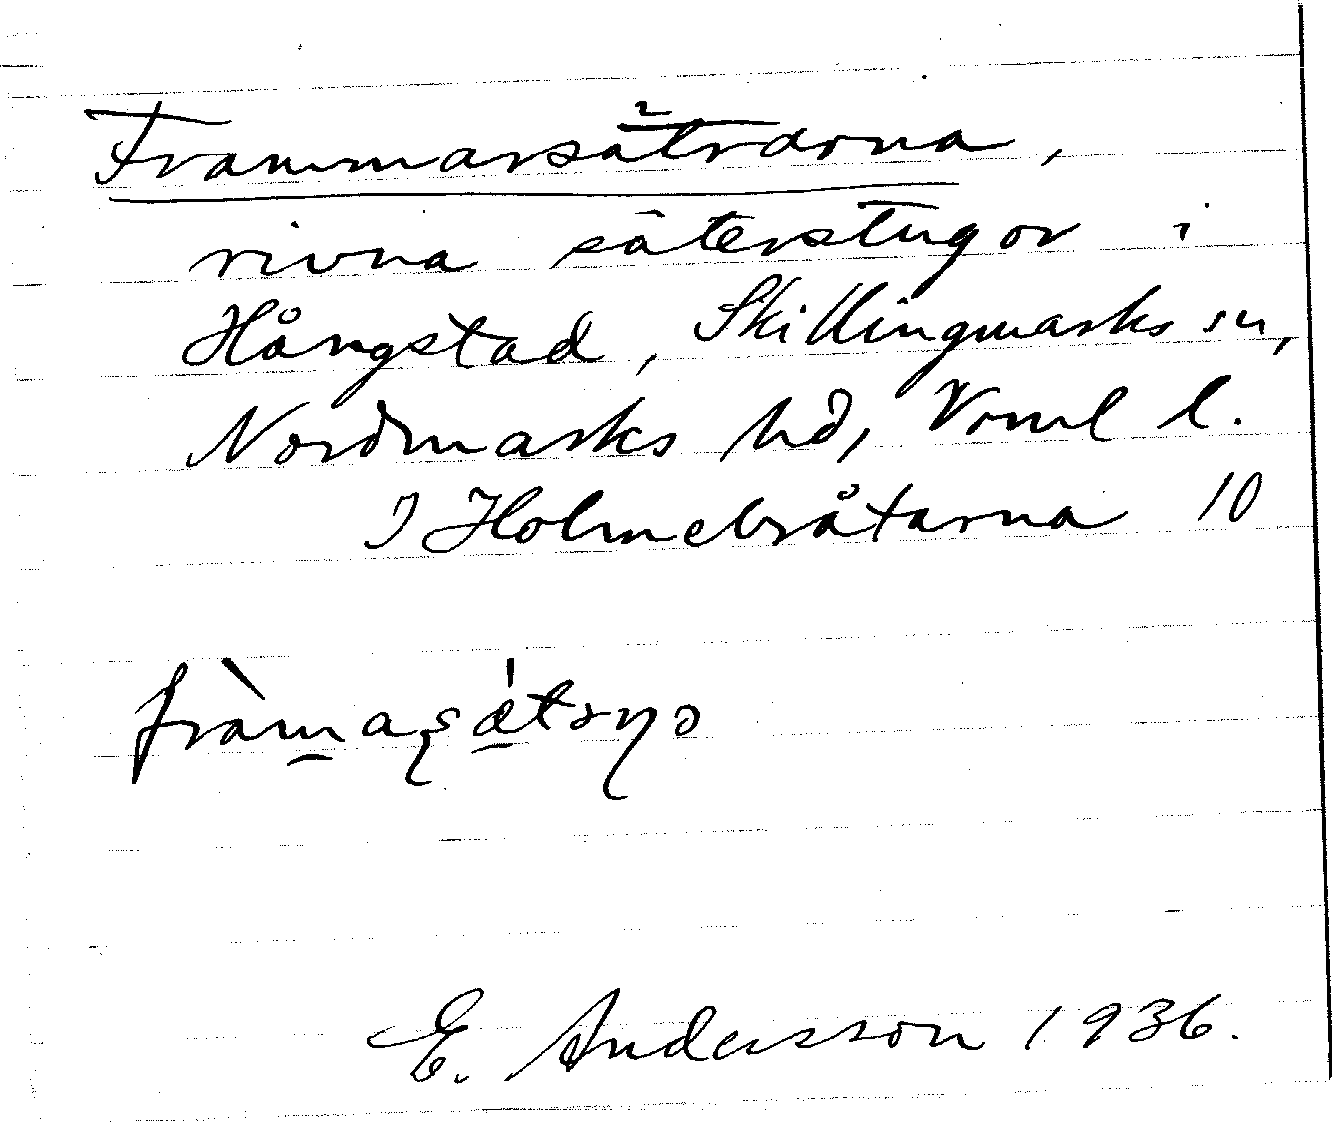 Frammarsätrarna,
rivna säterstugor i
Hångstad, Skillingmarks sn,
Nordmarks hd, Vrml l.
I Holmebråtarna 10
E. Andersson 1936.